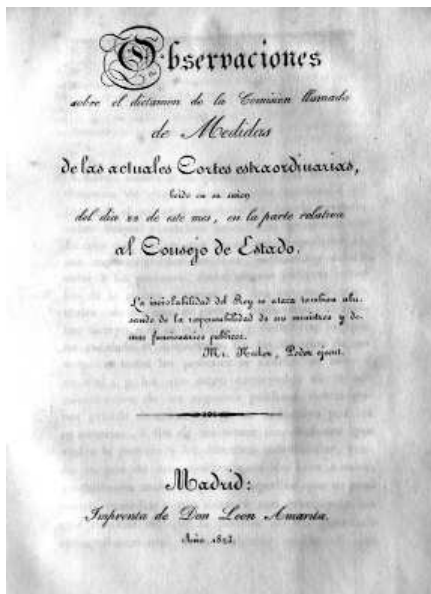 Observaciones
sobre el dictamen de la Comision llamada
de Medidas
de las actuales Cortes estraordinarias,
leido en su sesion
del dia 22 de este mes, en la parte relativa
al Consejo de Estado.
La inviolabilidad del Rey se ataca tambien abu-
sando de la responsabilidad de sus ministros y de-
mas funcionarios publicos.
Mr. Neker, Poder ejecut.
Madrid:
Imprenta de Don Leon Amarita.
Año 1823.